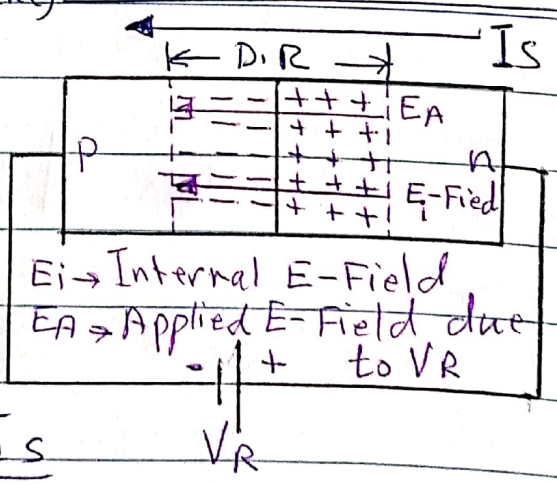 Is
D.R
- - - + + + EA
- - + + +
P - - - + + + n
- - - + + + Ei-Fied
- - - + + +
Ei → Internal E-Field
EA → Applied E-Field due
- + to VR
VR
s